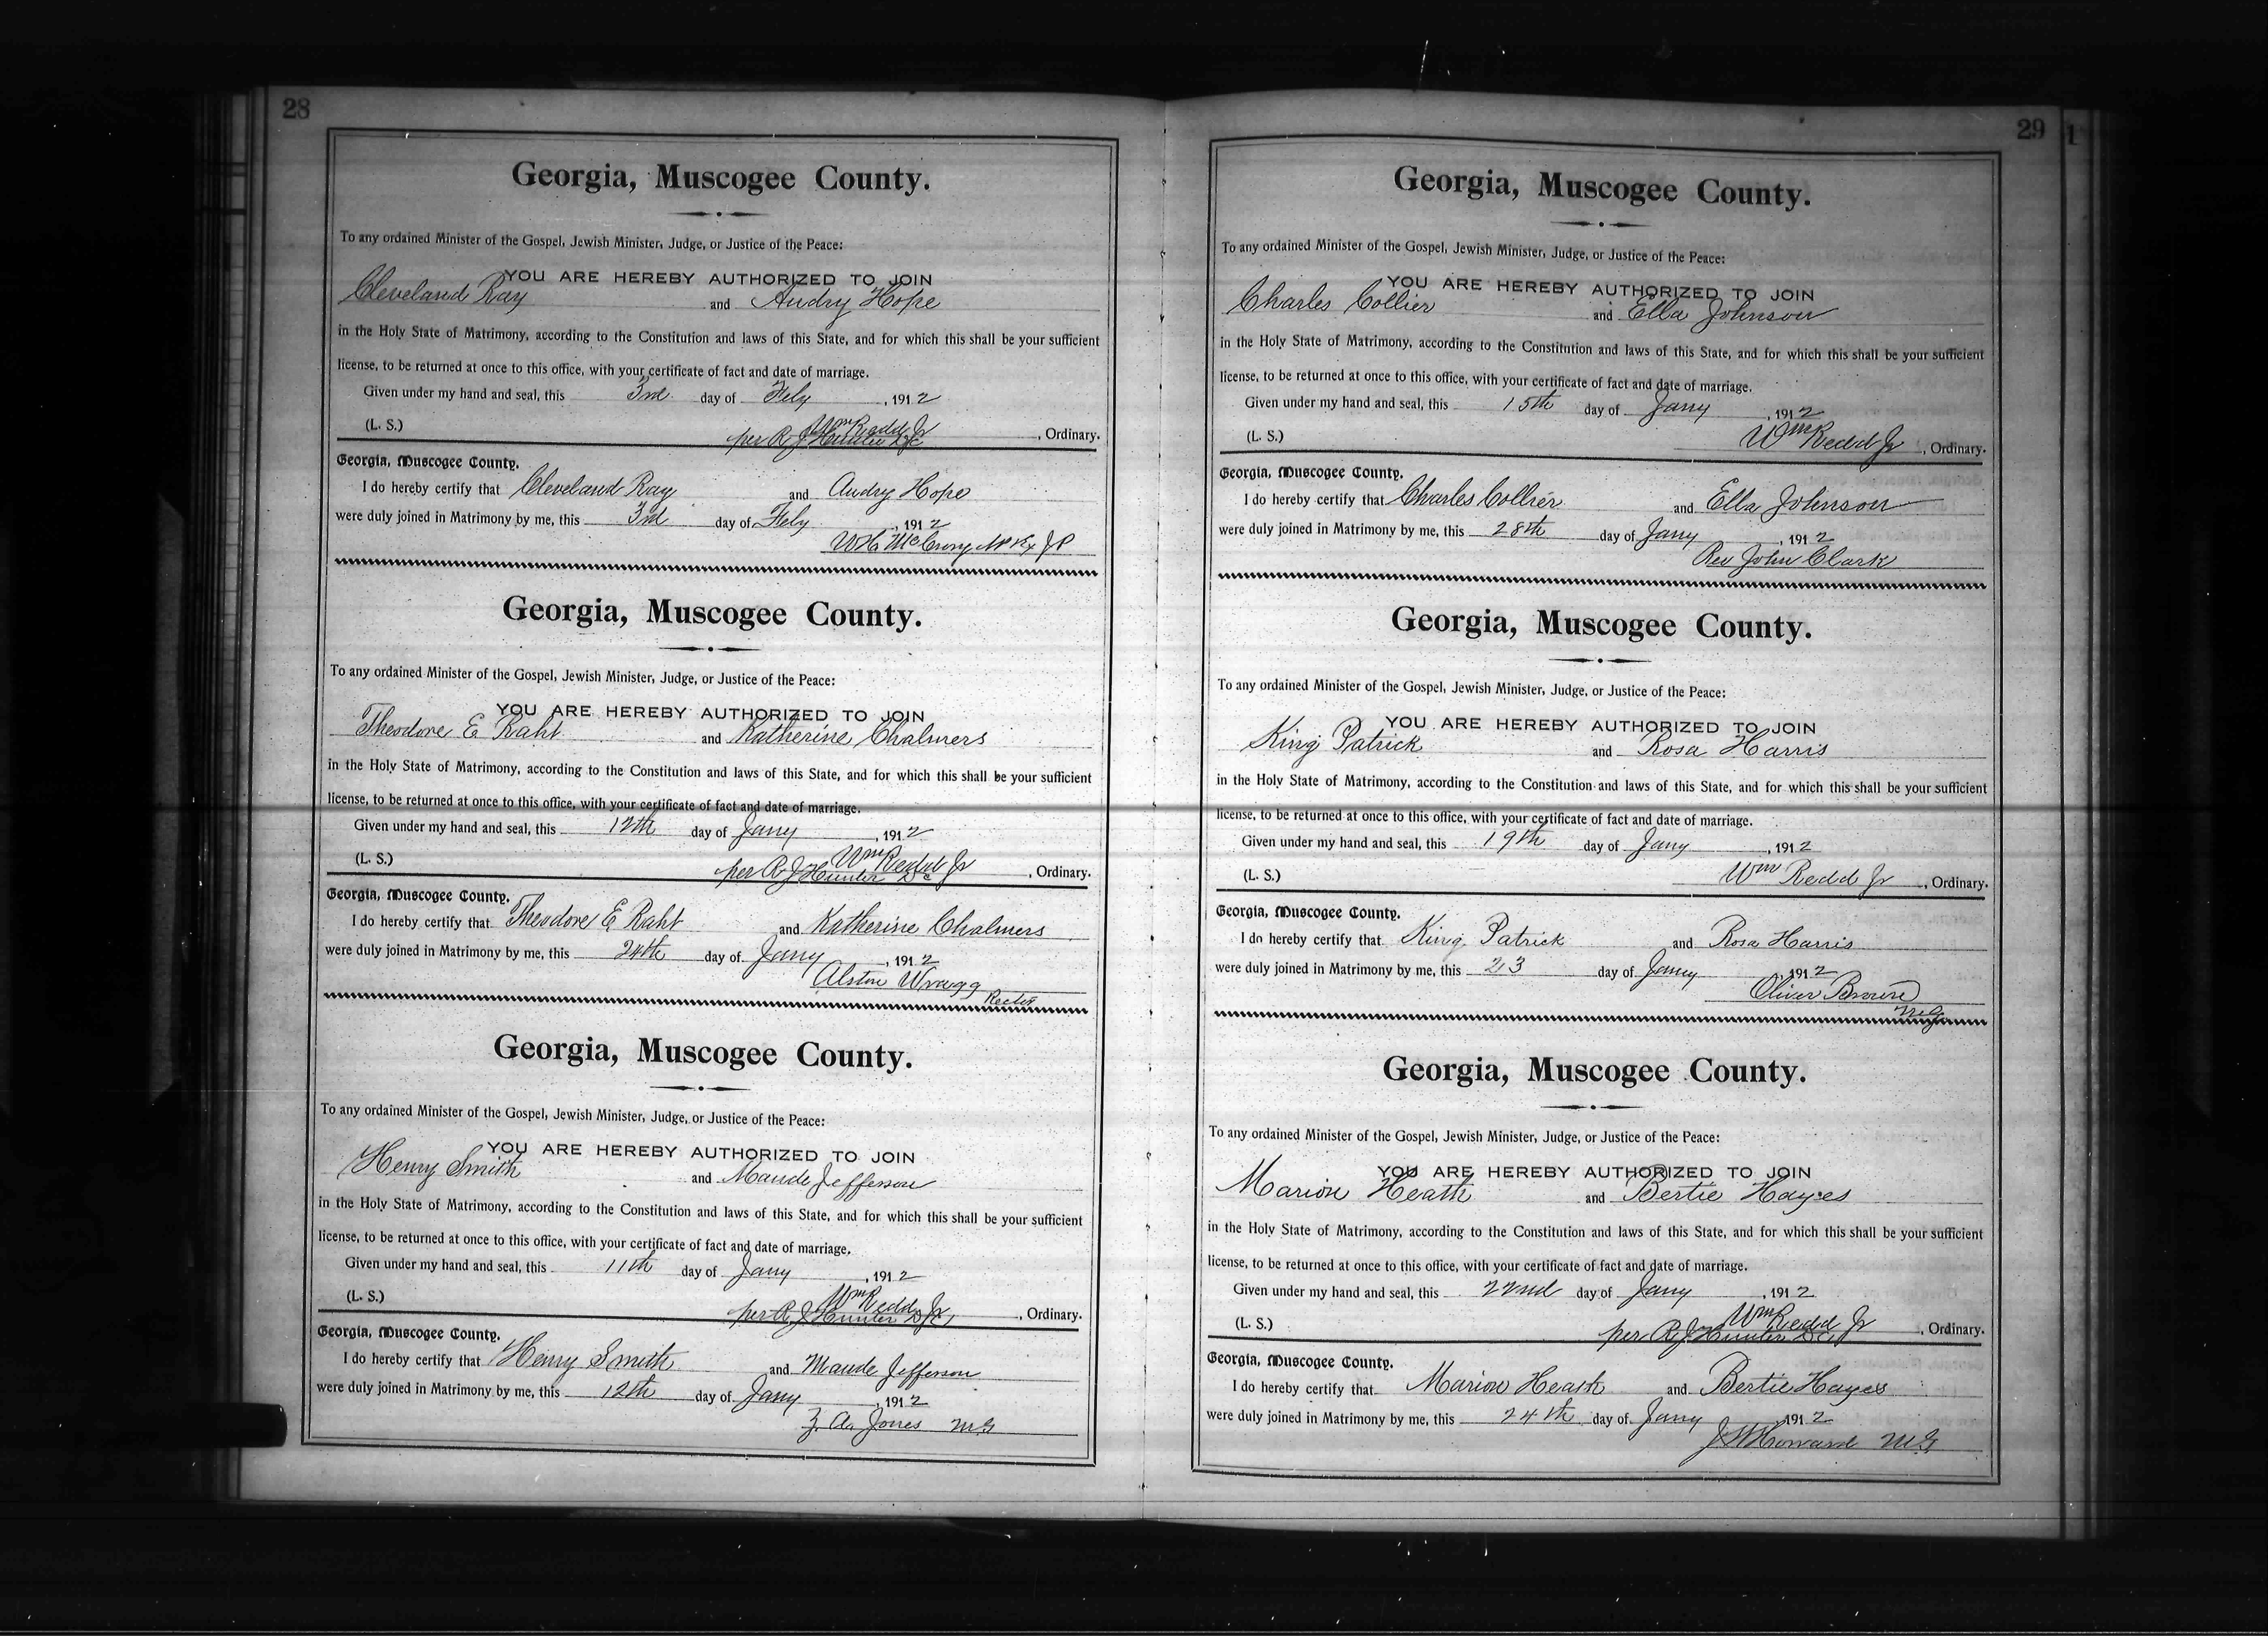 28
Georgia, Muscogee County.
To any ordained Minister of the Gospel, Jewish Minister, Judge, or Justice of the Peace:
YOU ARE HEREBY AUTHORIZED TO JOIN
Cleveland Ray and Audry Hope
in the Holy State of Matrimony, according to the Constitution and laws of this State, and for which this shall be your sufficient
license, to be returned at once to this office, with your certificate of fact and date of marriage.
Given under my hand and seal, this 3rd day of Feby, 1912
Wm Redd Jr
(L. S.) per R J Hunter DC, Ordinary.
Georgia, Muscogee County.
I do hereby certify that Cleveland Ray and Audry Hope
were duly joined in Matrimony by me, this 3rd day of Feby, 1912
W H McCrory JP
Georgia, Muscogee County.
To any ordained Minister of the Gospel, Jewish Minister, Judge, or Justice of the Peace:
YOU ARE HEREBY AUTHORIZED TO JOIN
Theodore E Raht and Katherine Chalmers
in the Holy State of Matrimony, according to the Constitution and laws of this State, and for which this shall be your sufficient
license, to be returned at once to this office, with your certificate of fact and date of marriage.
Given under my hand and seal, this 12th day of Jany, 1912
Wm Redd Jr
(L. S.) per R J Hunter DC, Ordinary.
Georgia, Muscogee County.
I do hereby certify that Theodore E Raht and Katherine Chalmers
were duly joined in Matrimony by me, this 24th day of Jany, 1912
Alston Wragg
Rector
Georgia, Muscogee County.
To any ordained Minister of the Gospel, Jewish Minister, Judge, or Justice of the Peace:
YOU ARE HEREBY AUTHORIZED TO JOIN
Henry Smith and Maude Jefferson
in the Holy State of Matrimony, according to the Constitution and laws of this State, and for which this shall be your sufficient
license, to be returned at once to this office, with your certificate of fact and date of marriage.
Given under my hand and seal, this 11th day of Jany, 1912
Wm Redd Jr
(L. S.) per R J Hunter DC, Ordinary.
Georgia, Muscogee County.
I do hereby certify that Henry Smith and Maude Jefferson
were duly joined in Matrimony by me, this 12th day of Jany, 1912
Z. A. Jones MG
29
Georgia, Muscogee County.
To any ordained Minister of the Gospel, Jewish Minister, Judge, or Justice of the Peace:
YOU ARE HEREBY AUTHORIZED TO JOIN
Charles Collier and Ella Johnson
in the Holy State of Matrimony, according to the Constitution and laws of this State, and for which this shall be your sufficient
license, to be returned at once to this office, with your certificate of fact and date of marriage.
Given under my hand and seal, this 15th day of Jany, 1912
(L. S.) Wm Redd Jr, Ordinary.
Georgia, Muscogee County.
I do hereby certify that Charles Collier and Ella Johnson
were duly joined in Matrimony by me, this 28th day of Jany, 1912
Rev John Clark
Georgia, Muscogee County.
To any ordained Minister of the Gospel, Jewish Minister, Judge, or Justice of the Peace:
YOU ARE HEREBY AUTHORIZED TO JOIN
King Patrick and Rosa Harris
in the Holy State of Matrimony, according to the Constitution and laws of this State, and for which this shall be your sufficient
license, to be returned at once to this office, with your certificate of fact and date of marriage.
Given under my hand and seal, this 19th day of Jany, 1912
(L. S.) Wm Redd Jr, Ordinary.
Georgia, Muscogee County.
I do hereby certify that King Patrick and Rosa Harris
were duly joined in Matrimony by me, this 23 day of Jany, 1912
Oliver Brown
MG
Georgia, Muscogee County.
To any ordained Minister of the Gospel, Jewish Minister, Judge, or Justice of the Peace:
YOU ARE HEREBY AUTHORIZED TO JOIN
Marion Heath and Bertie Hayes
in the Holy State of Matrimony, according to the Constitution and laws of this State, and for which this shall be your sufficient
license, to be returned at once to this office, with your certificate of fact and date of marriage.
Given under my hand and seal, this 22nd day of Jany, 1912
Wm Redd Jr
(L. S.) per R J Hunter DC, Ordinary.
Georgia, Muscogee County.
I do hereby certify that Marion Heath and Bertie Hayes
were duly joined in Matrimony by me, this 24th day of Jany, 1912
J W Howard MG